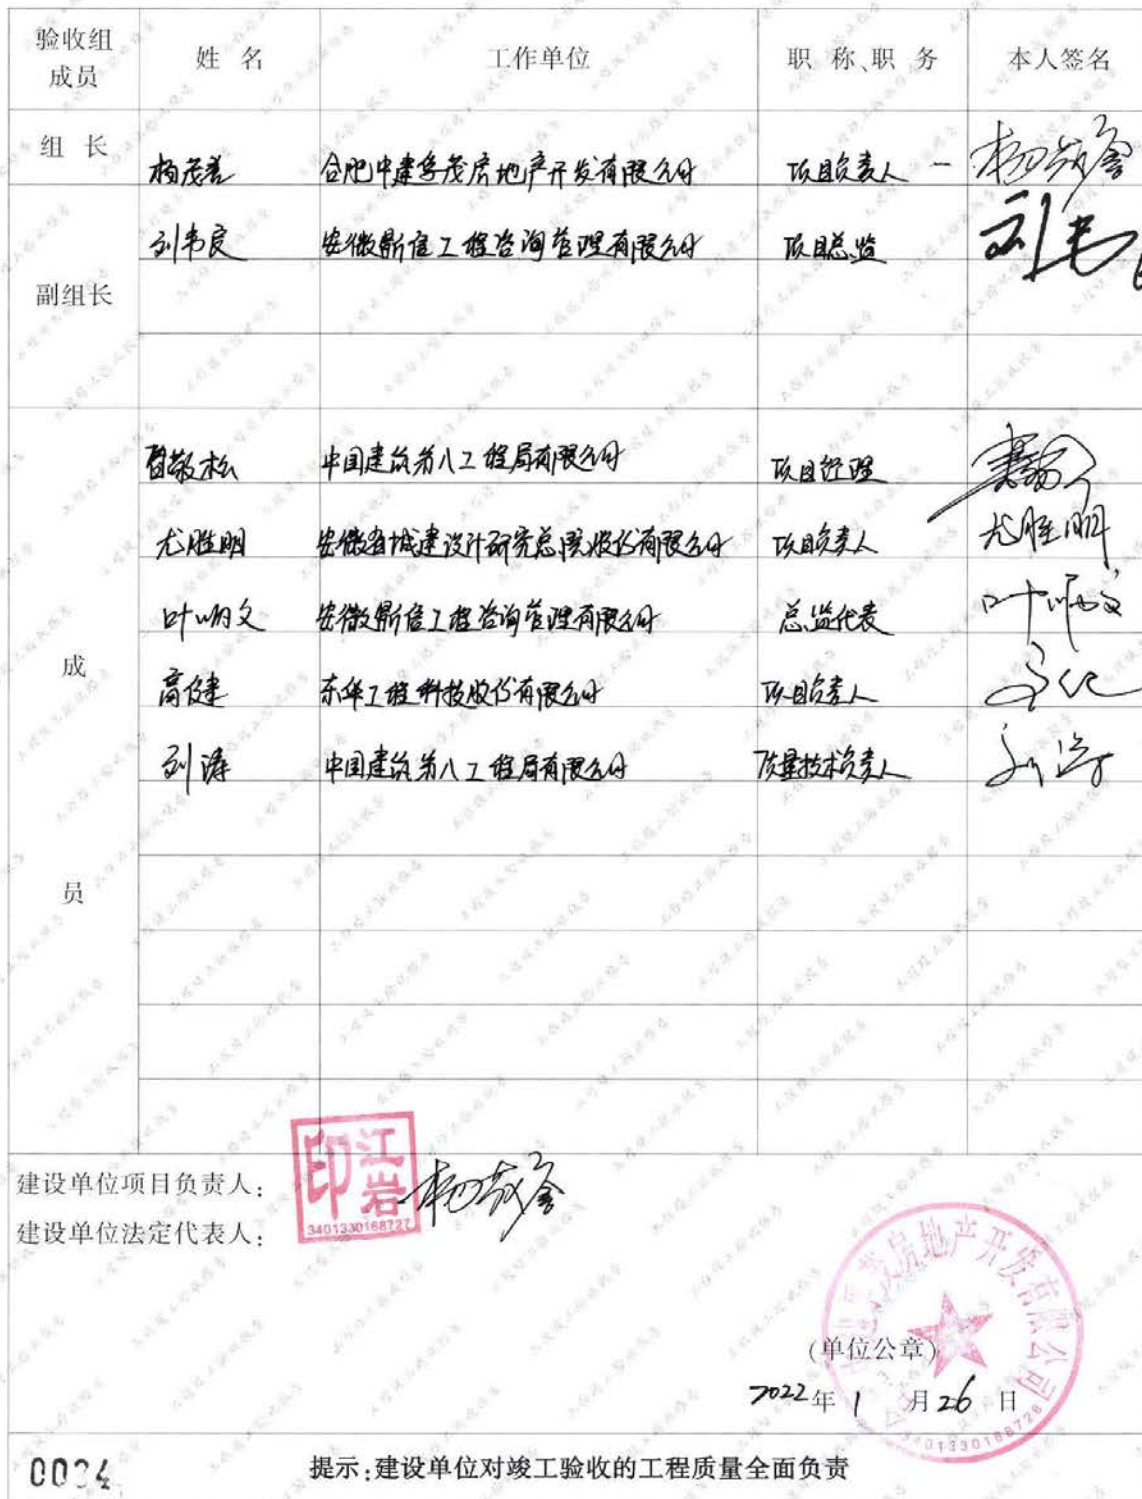 验收组成员 姓 名 工作单位 职 称、职 务 本人签名
组 长 杨茂 合肥中建孚茂房地产开发有限公司 项目负责人
刘韦良 安徽鼎信工程咨询管理有限公司 项目总监 刘韦
副组长
敬松 中国建筑第八工程局有限公司 项目经理
尤胜明 安徽省城建设计研究总院股份有限公司 项目负责人 尤胜明
叶炳文 安徽鼎信工程咨询管理有限公司 总监代表 叶炳文
成 高健 东华工程科技股份有限公司 项目负责人
刘涛 中国建筑第八工程局有限公司 质量技术负责人 刘涛
员
建设单位项目负责人:
建设单位法定代表人:
江岩印
3401330168727
房地产开发有限公司
3401330168726
(单位公章)
2022年 1 月 26 日
提示:建设单位对竣工验收的工程质量全面负责